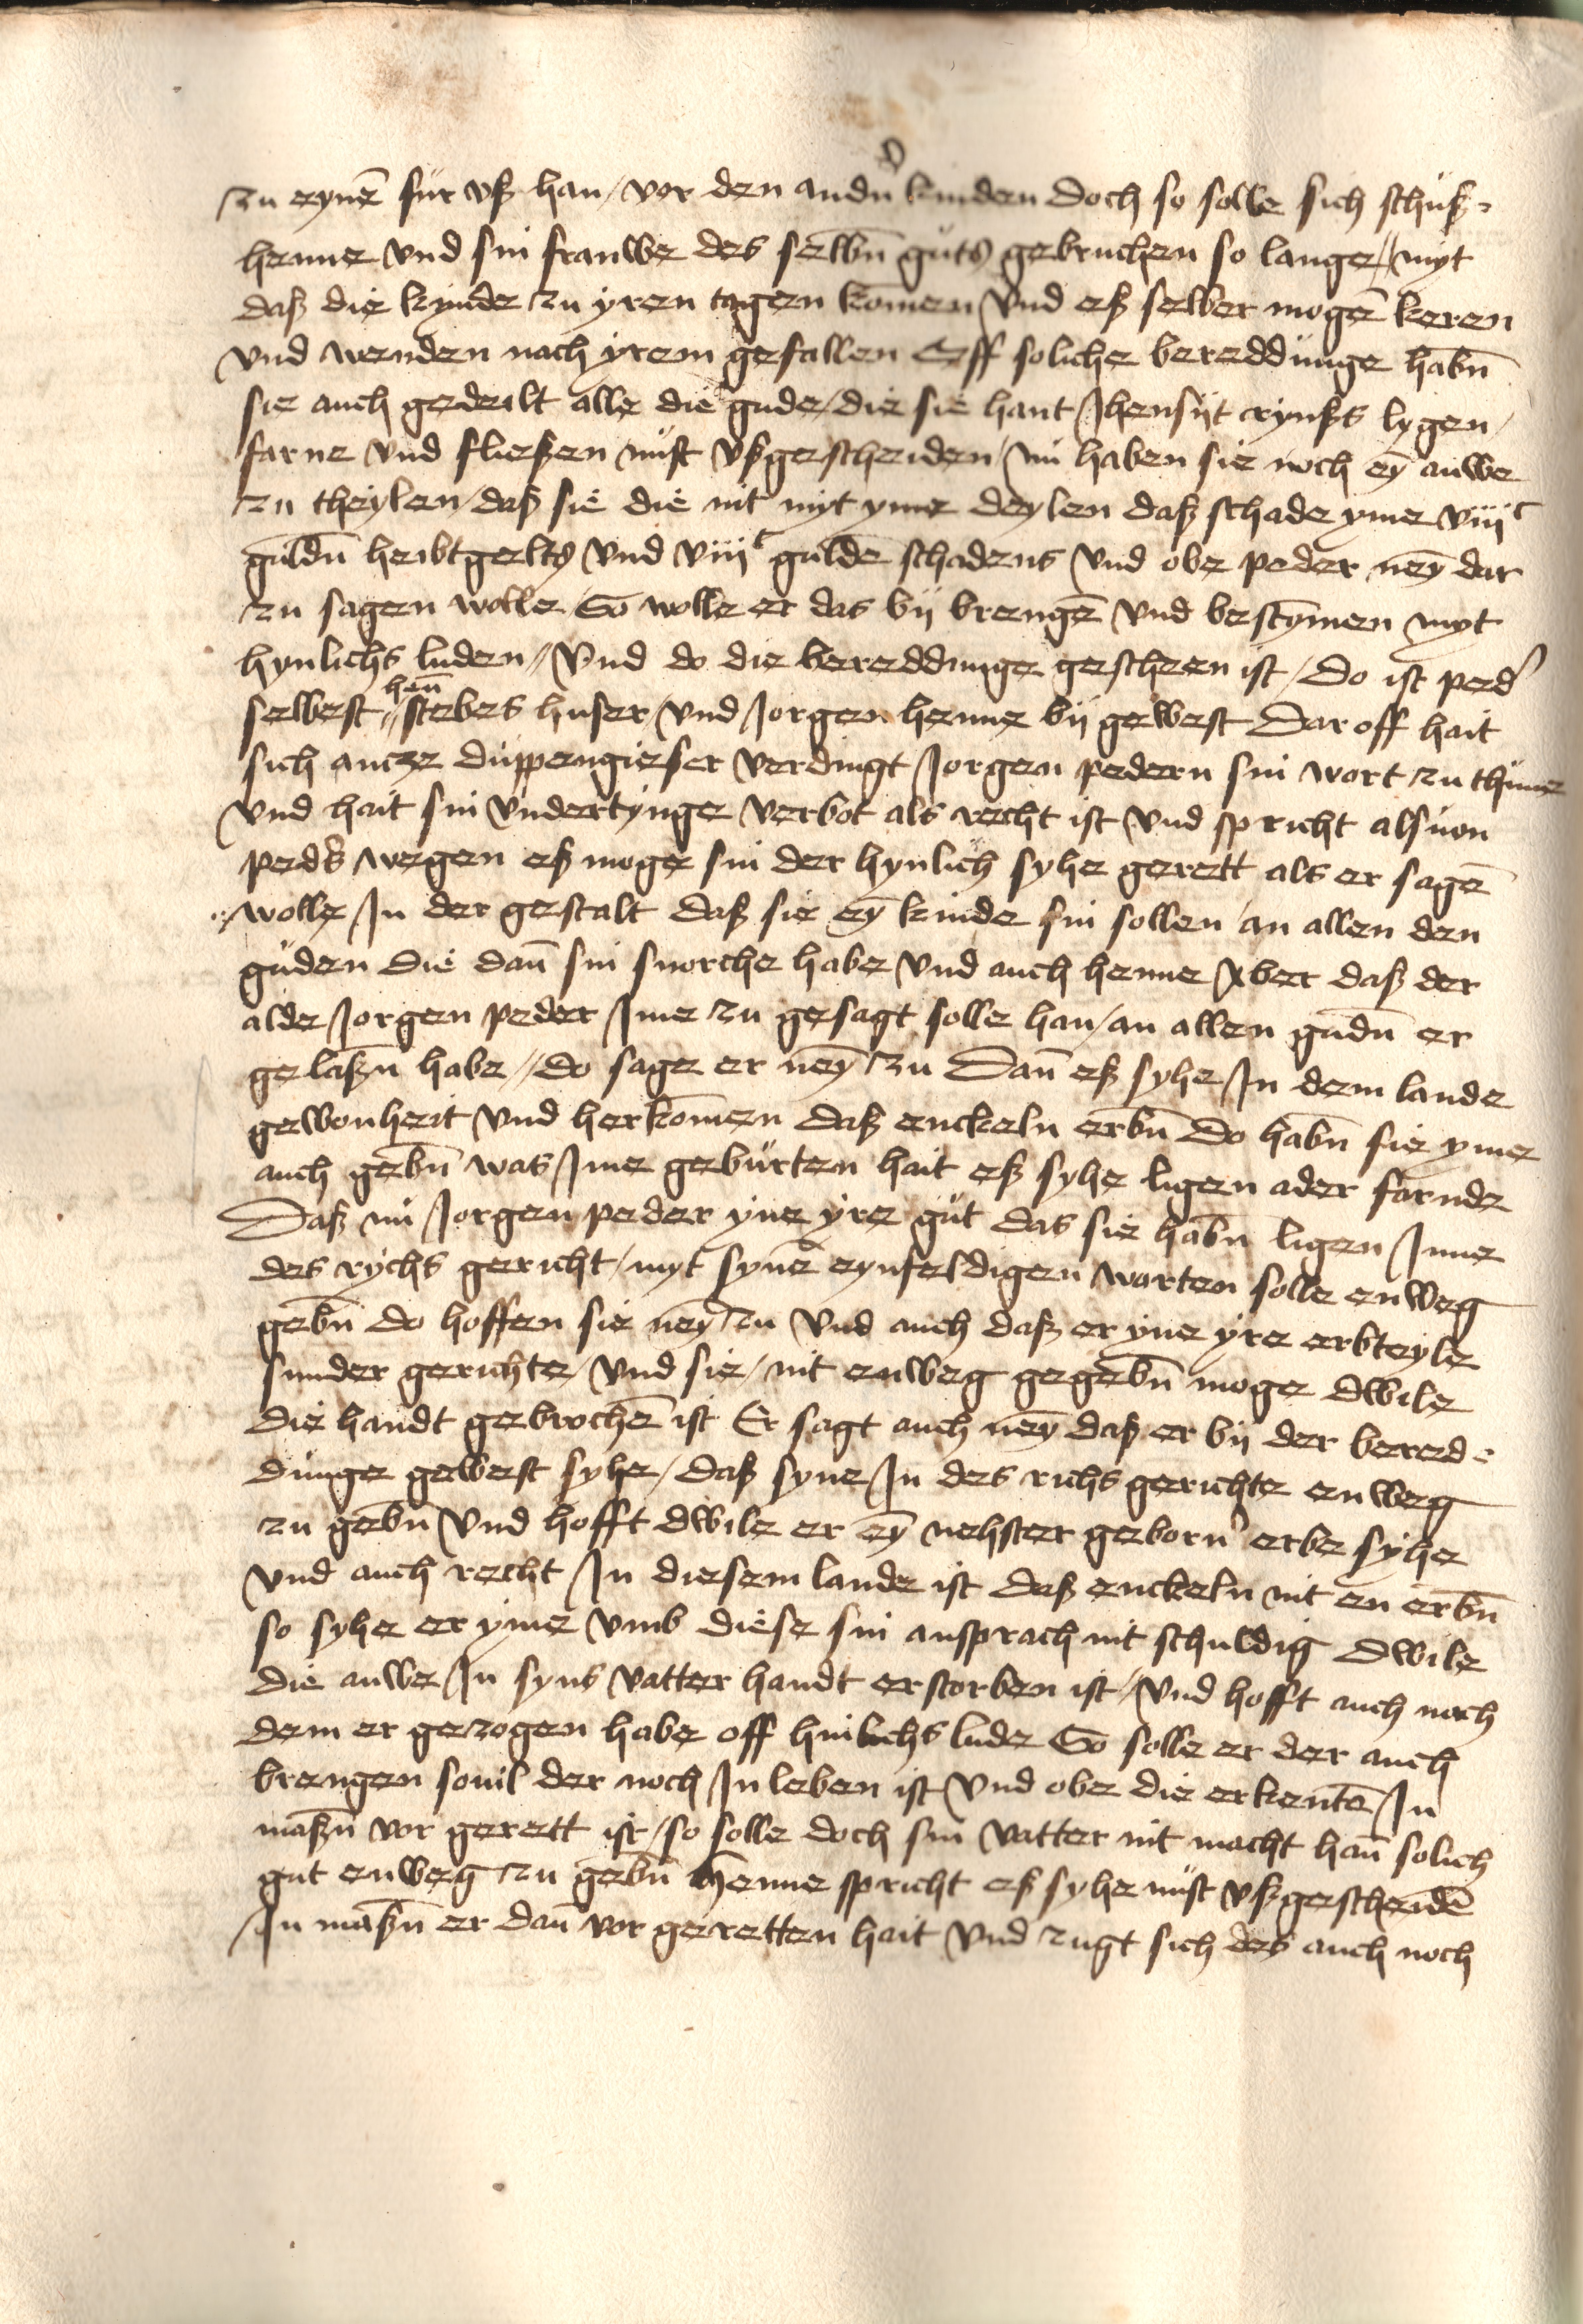 zu eynē fur vß han / vor den andn̄ kinden Doch so solle sich schuß-
henne vnd sin frauwe des selbn̄ guts gebruchen so lange // myt
daß die kynde zu yren tagen komen vnd eß selber mogē keren
vnd wenden nach yrem gefallen Off soliche bereddunge habn̄
sie auch gedeilt alle die gude / die sie hant Jhensijt rynßs lygen /
farne vnd fließen nust vßgescheiden / nu haben sie noch eȳ auwe
zu theylen / daß sie die nit myt yme deylen daß schade yme viiiᶜ
guldn̄ heibtgelts vnd viiiᶜ guldē schadens vnd obe peder neȳ dar
zu sagen wolle So wolle er das bij brengē vnd bestȳmen myt
hynlichs luden // Vnd do die bereddunge gescheen ist / Do ist ped'
selbest // hen̄ stebes huser / vnd Jorgen henne bij gewest Dar off hait
sich ancze duppengießer verdingt Jorgen pedern sin wort zu thune
vnd hait sin vndertynge verbot als recht ist vnd spricht alsuon
peds wegen eß moge sin der hynlich syhe gerett als er sagē
wolle Jn der gestalt daß sie eȳ kinde sin sollen an allen den
guden die dan̄ sin snorche habe vnd auch henne Aber daß der
alde Jorgen peder Jme zu gesagt solle han / an allen gudn̄ er
gelaßn̄ habe // do sage er neȳ zu Dan̄ eß syhe Jn dem lande
gewonheit vnd herkomen daß enckeln erbn̄ Do habn̄ sie yme
auch gebn̄ was Jme geburten hait eß syhe ligen ader farnde
Daß nu Jorgen peder yne yre gut das sie habn̄ ligen Jnne
des rychs gericht / myt synē eynfeldigen worten solle enweg
gebn̄ do hoffen sie neȳ zu vnd auch daß er yne yre erbteyle
sunder gerichte / vnd sie / nit enweg gegebn̄ moge dwile
die handt gebrochē ist Er sagt auch neȳ daß er bij der beredd-
dunge gewest syhe / daß syne Jn des richs gerichte enweg
zu gebn̄ vnd hofft dwile er eȳ nehster geborn' erbe syhe
vnd auch recht Jn diesem lande ist daß enckeln nit en erbn̄
so syhe er yme vmb diese sin ansprach nit schuldig dwile
die auwe Jn syns vatter handt erstorben ist / vnd hofft auch noch
dem er gezogen habe off hinlichs lude So solle er der auch
brengen souil der noch Jn leben ist vnd obe die erkentē Jn
maßn̄ vor gerett ist / so solle doch sin vatter nit macht han̄ solich
gut enweg zu gebn̄ Henne spricht eß syhe nust vßgescheidē
Jn maßn̄ er dan̄ vor geretten hait vnd zugt sich des auch noch